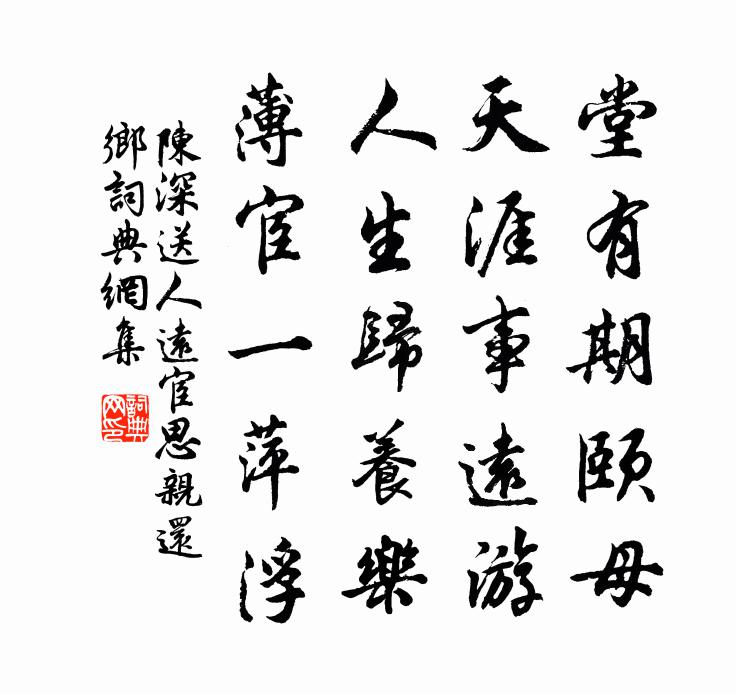 堂有期頤母
天涯事遠游
人生歸養樂
薄宦一萍浮
陳深送人遠宦思親還
鄉詞典網集
詞典
网印